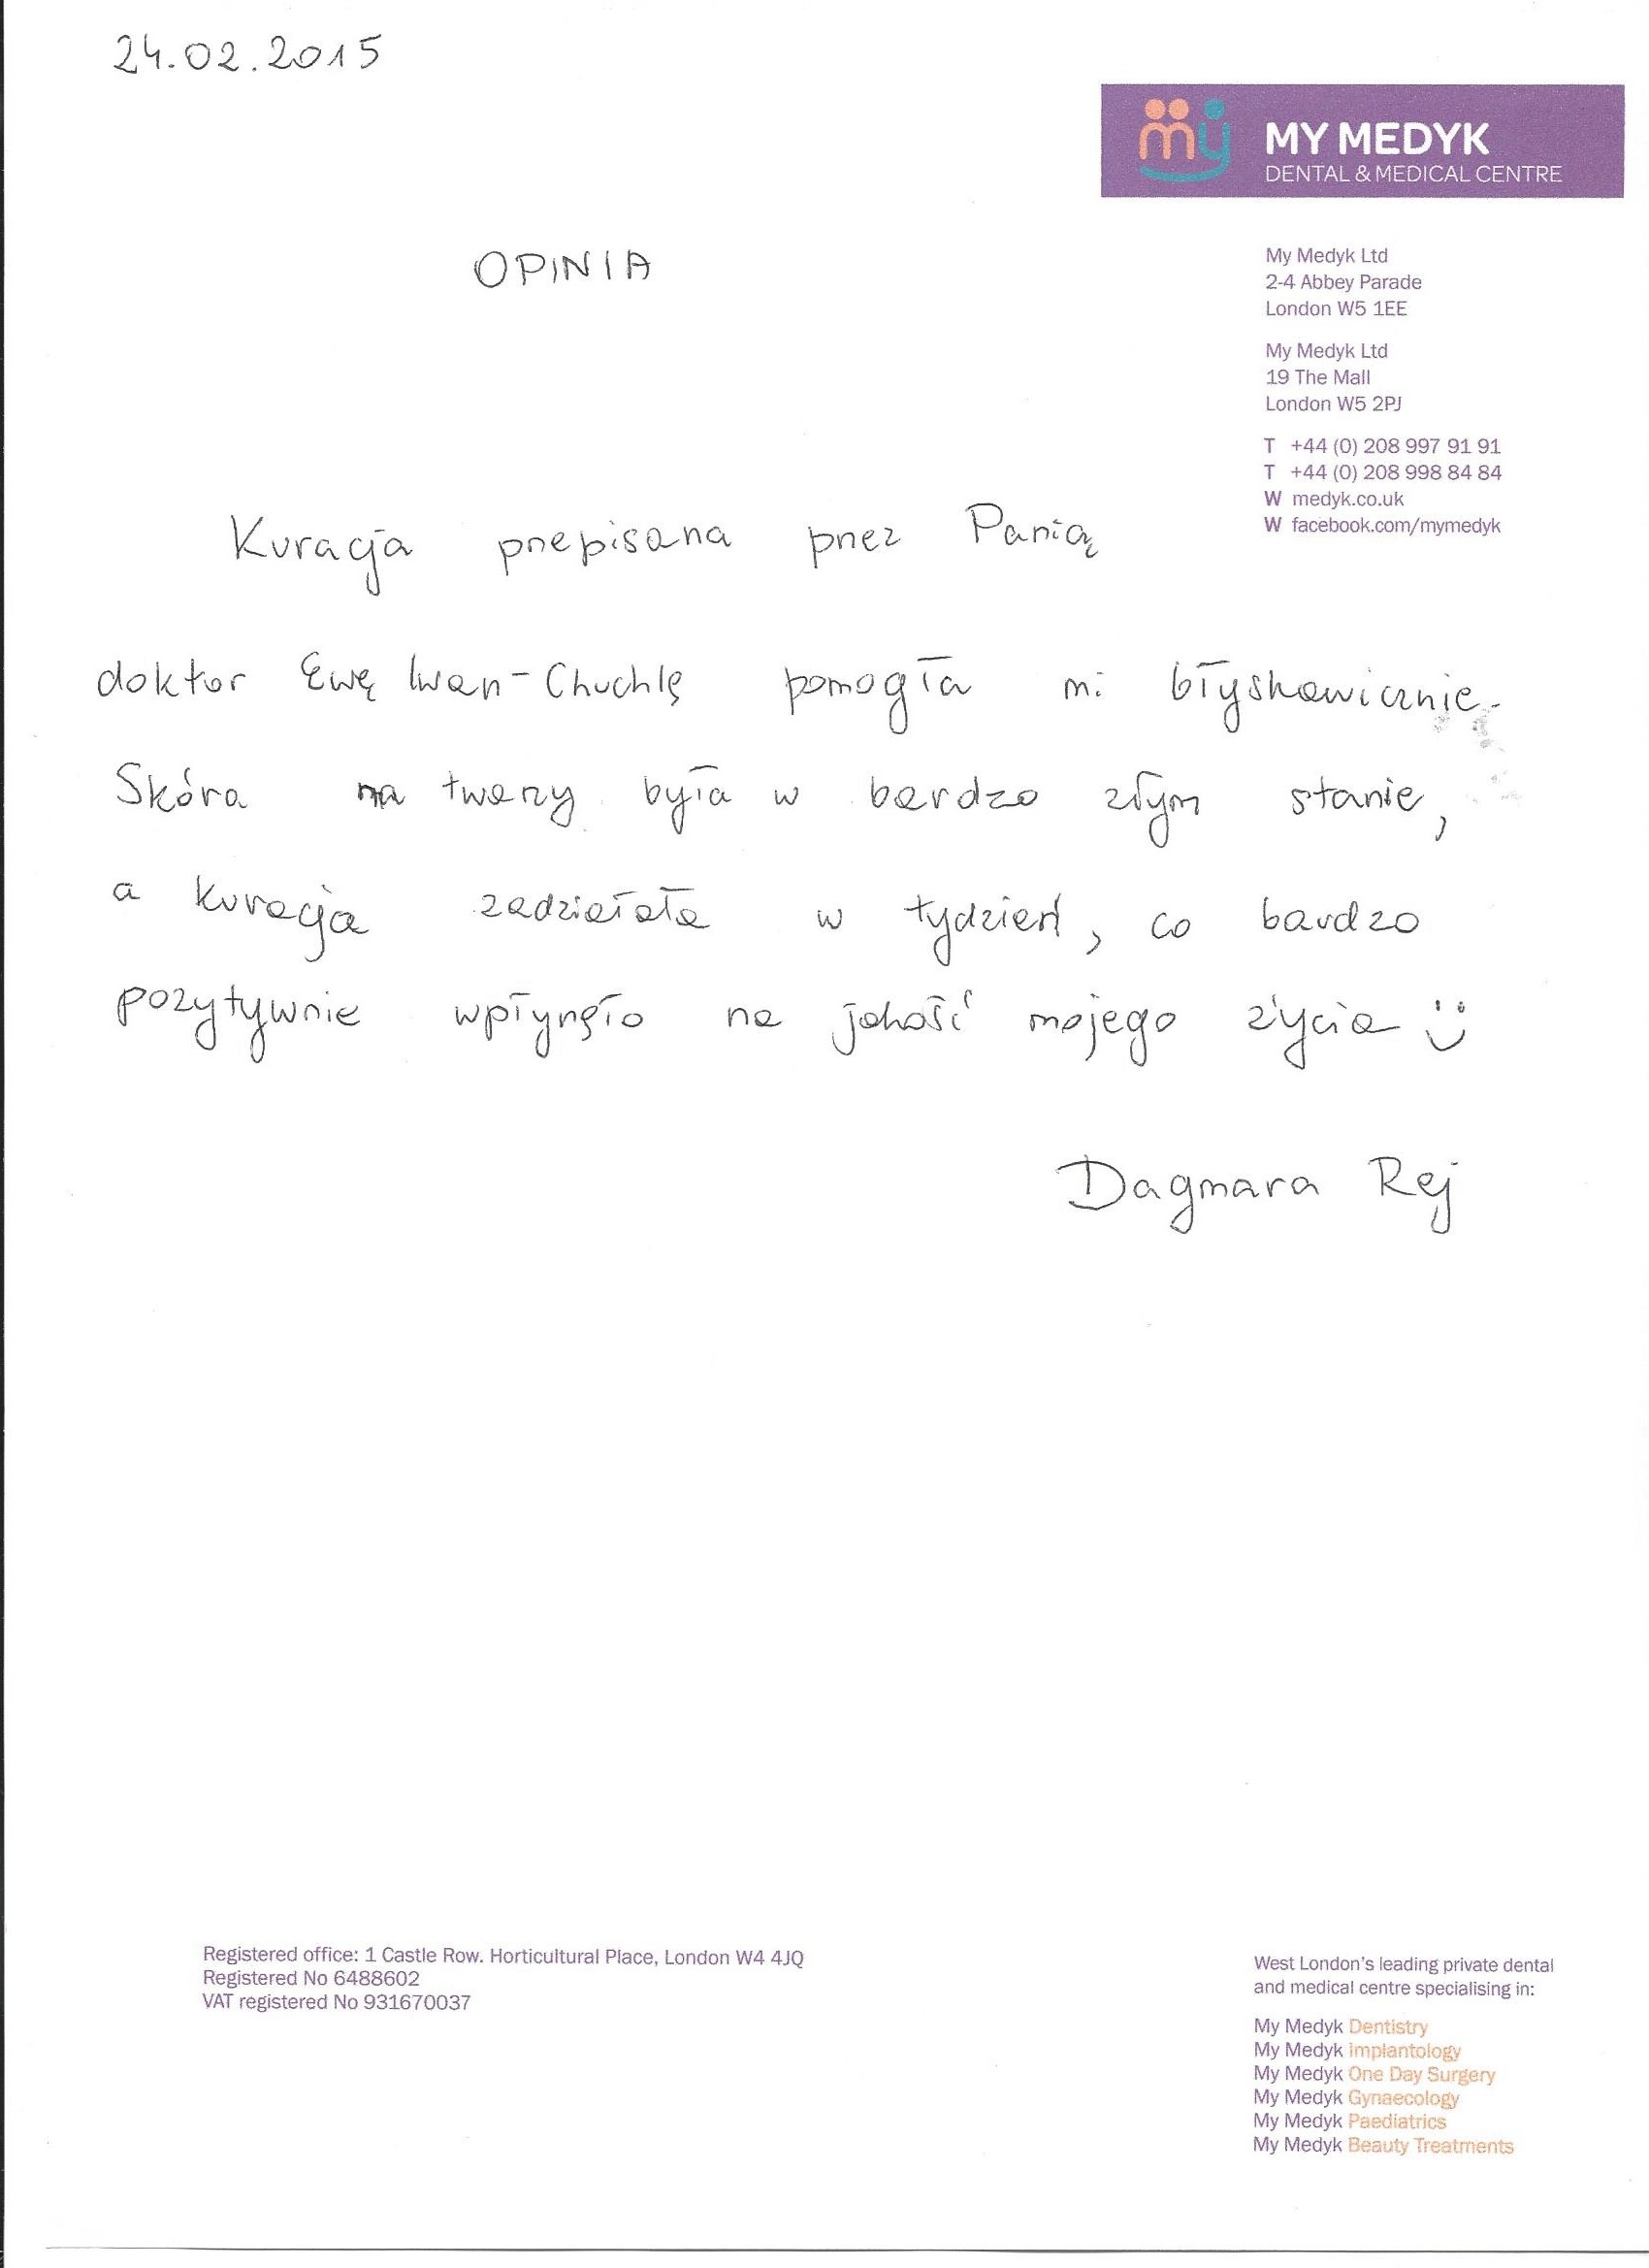 24.02.2015
my MY MEDYK
DENTAL & MEDICAL CENTRE
OPINIA
My Medyk Ltd
2-4 Abbey Parade
London W5 1EE
My Medyk Ltd
19 The Mall
London W5 2PJ
T +44 (0) 208 997 91 91
T +44 (0) 208 998 84 84
W medyk.co.uk
W facebook.com/mymedyk
Kuracja przepisana przez Panią
doktor Ewę Iwan-Chuchlę pomogła mi błyskawicznie.
Skóra na twarzy była w bardzo złym stanie,
a kuracja zadziałała w tydzień, co bardzo
pozytywnie wpłynęło na jakość mojego życia :)
Dagmara Rej
Registered office: 1 Castle Row. Horticultural Place, London W4 4JQ
Registered No 6488602
VAT registered No 931670037
West London's leading private dental
and medical centre specialising in:
My Medyk Dentistry
My Medyk Implantology
My Medyk One Day Surgery
My Medyk Gynaecology
My Medyk Paediatrics
My Medyk Beauty Treatments